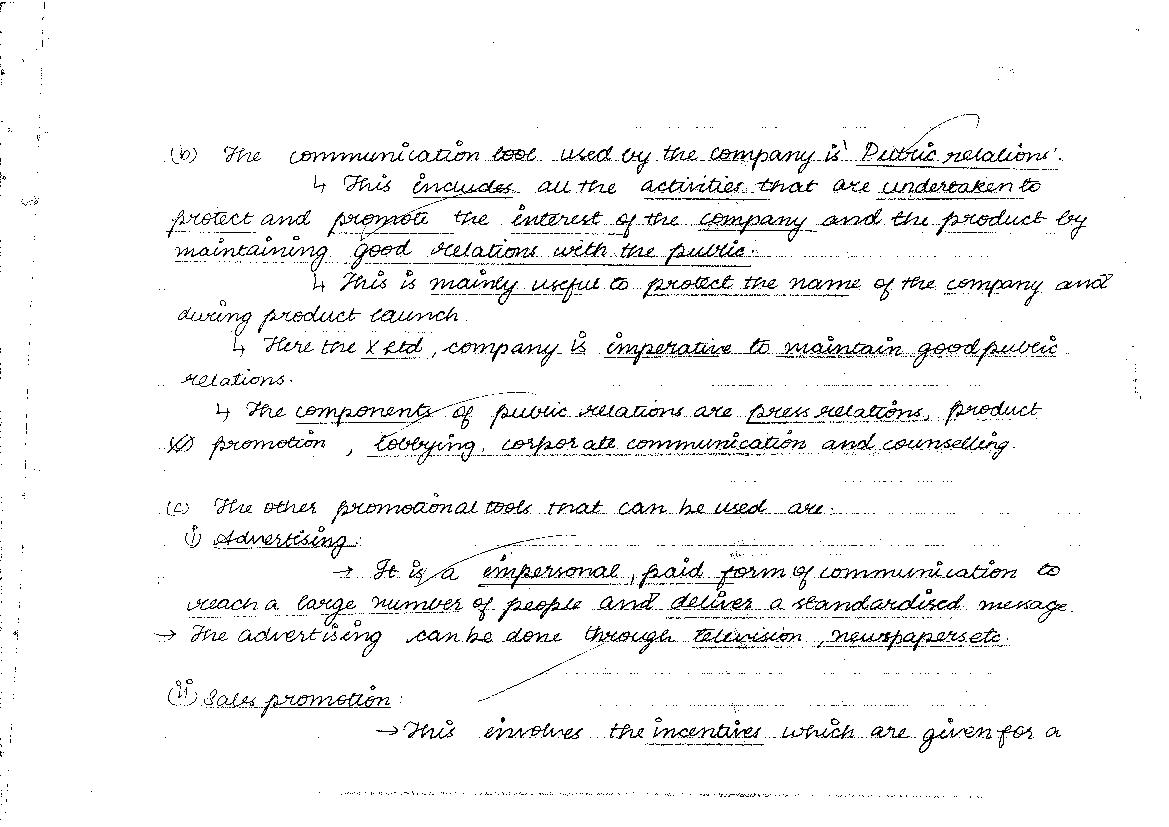 (b) The communication tool used by the company is 'Public relations'.
↳ This includes all the activities that are undertaken to
protect and promote the interest of the company and the product by
maintaining good relations with the public.
↳ This is mainly useful to protect the name of the company and
during product launch.
↳ Here the X Ltd, company is imperative to maintain good public
relations.
↳ The components of public relations are press relations, product
promotion, lobbying, corporate communication and counselling.
(c) The other promotional tools that can be used are:
(i) Advertising:
→ It is a impersonal, paid form of communication to
reach a large number of people and deliver a standardised message
→ The advertising can be done through television, newspapers etc.
(ii) Sales promotion:
→ This involves the incentives which are given for a